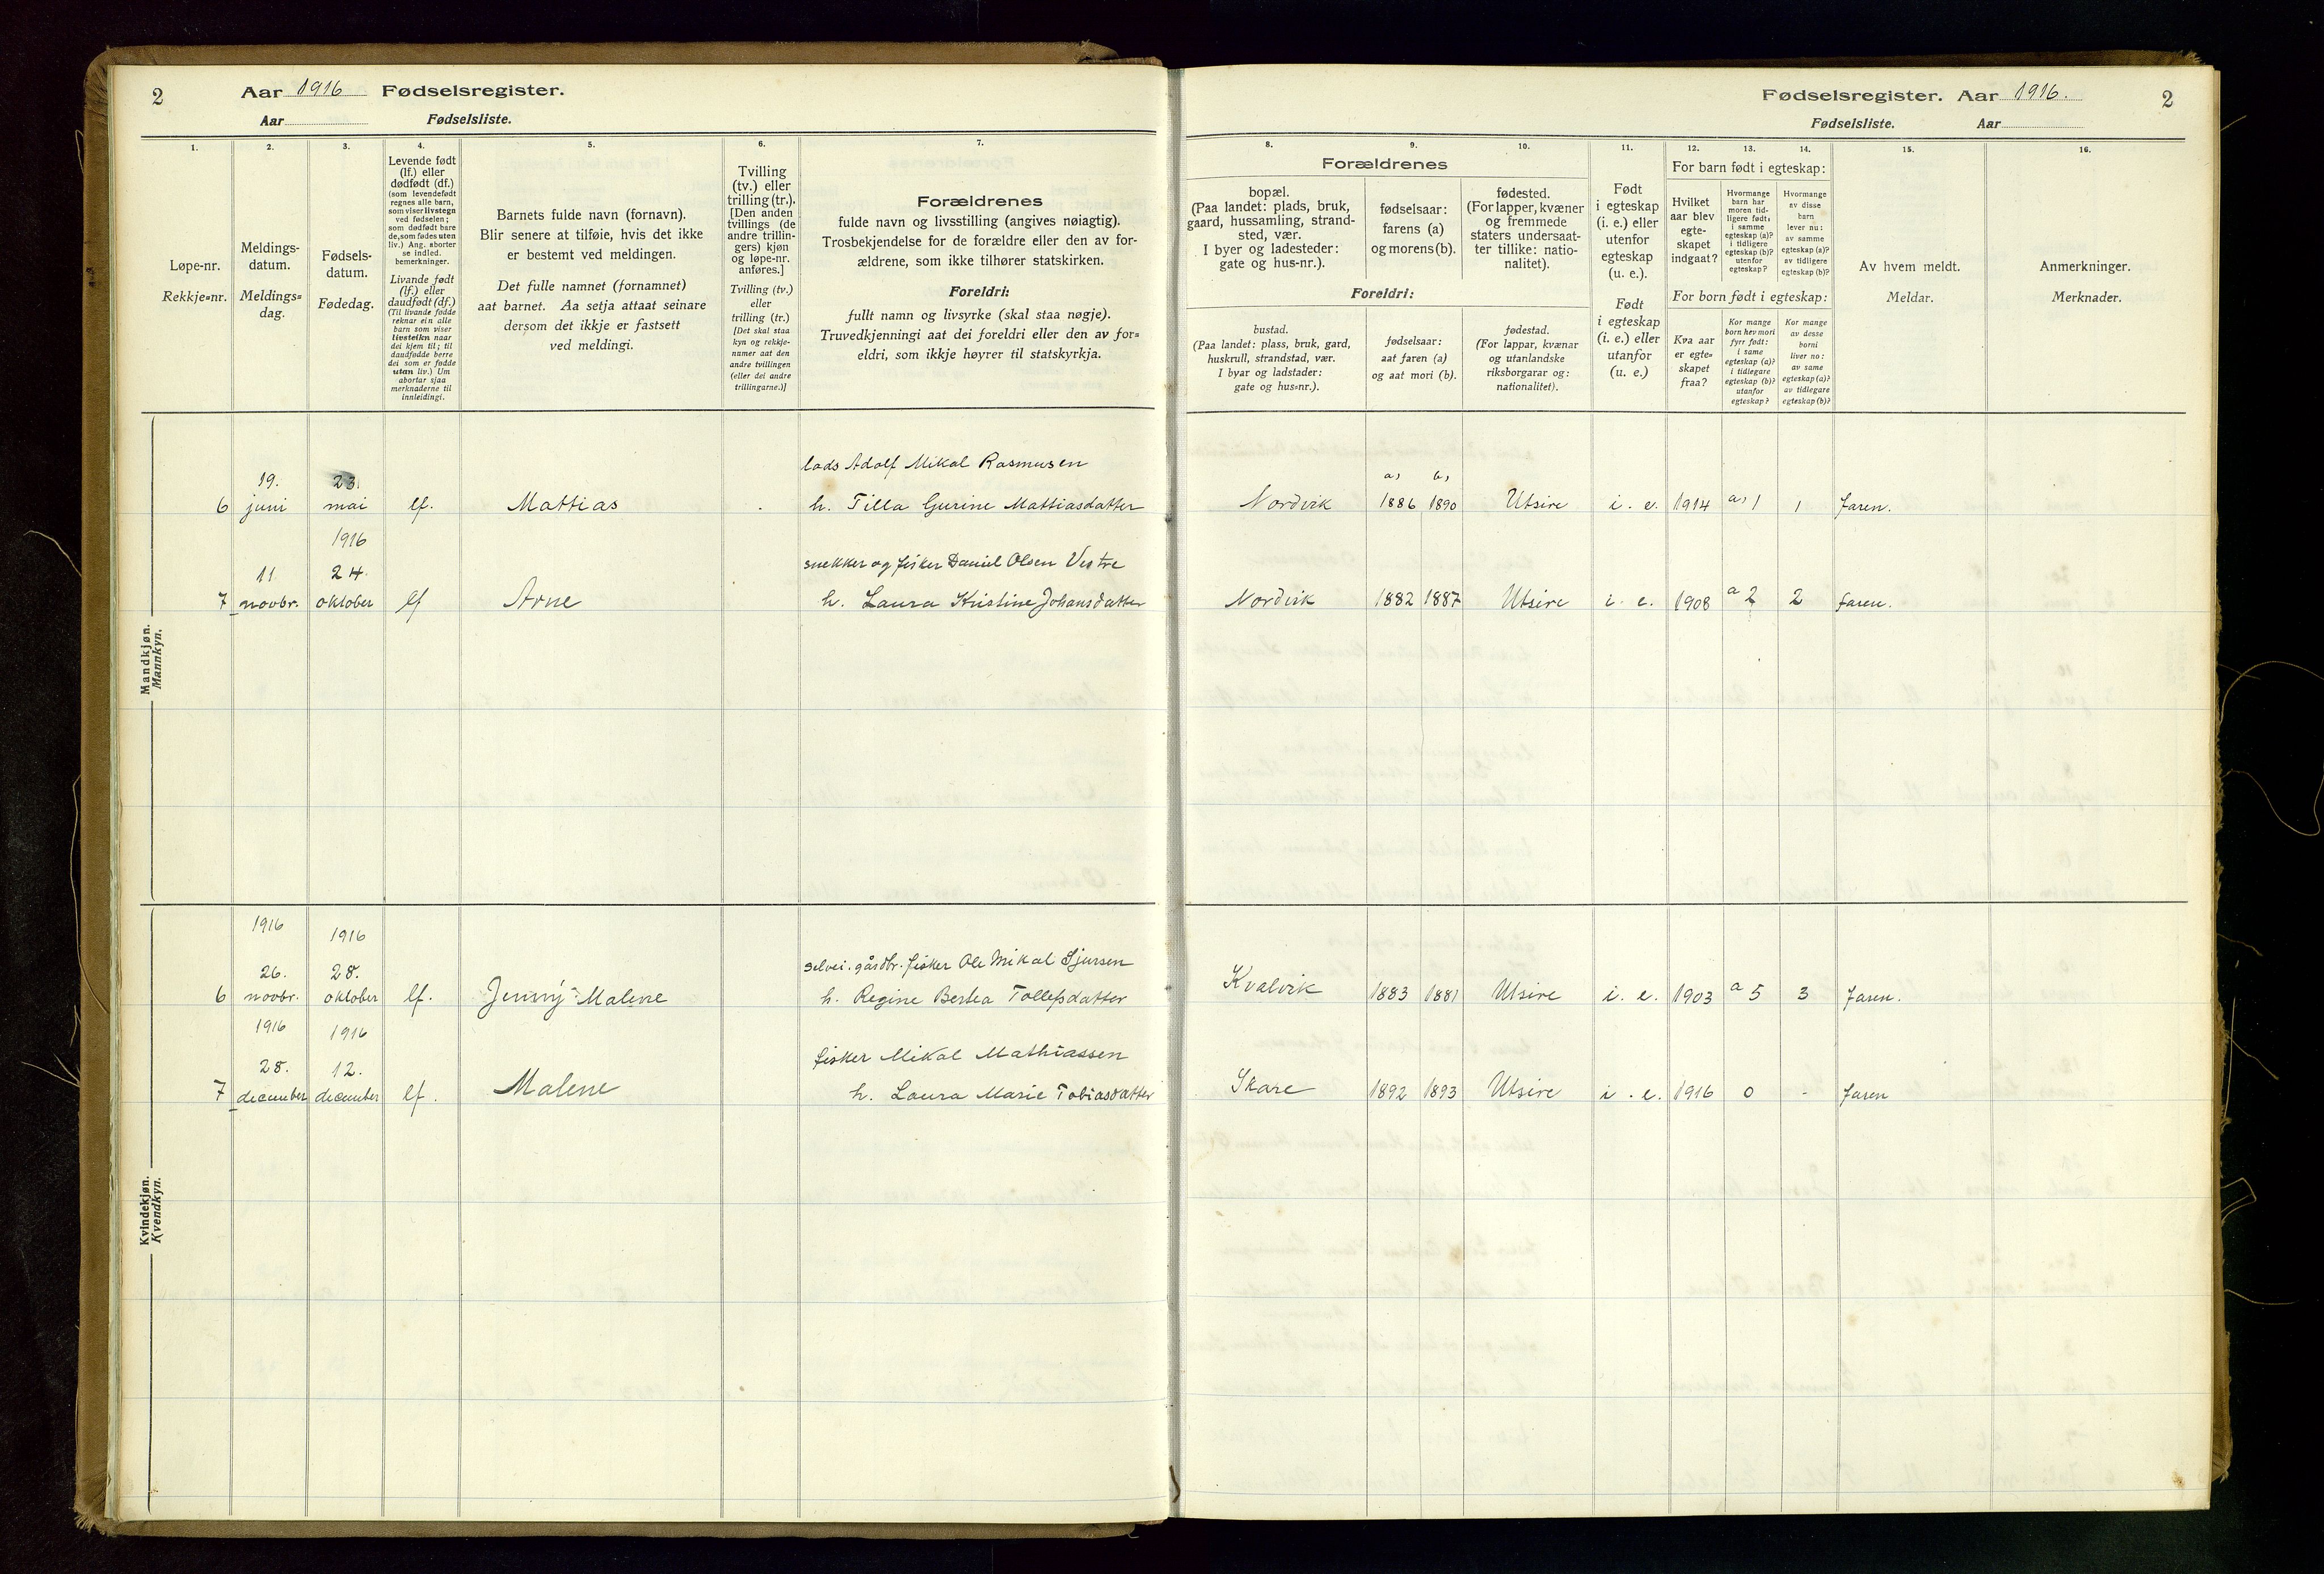 2
Aar 1916 Fødselsregister.
Aar Fødselsliste.
Fødselsregister. Aar 1916.
2
Fødselsliste. Aar
1.
Løpe-nr.
Rekkje=nr.
2.
Meldings-
datum.
Meldings=
dag.
3.
Fødsels-
datum.
Fødedag.
4.
Levende født
(lf.) eller
dødfødt (df.)
(som levendefødt
regnes alle barn,
som viser livstegn
ved fødselen;
som dødfødt bare
de, som fødes uten
liv.) Ang. aborter
se indled.
bemerkninger.
Livande født
(lf.) eller
daudfødt (df.)
(Til livande fødde
reknar ein alle
barn som viser
livsteikn naar
dei kjem til; til
daudfødde berre
dei som er fødde
utan liv.) Um
abortar sjaa
merknaderne til
innleidingi.
5.
Barnets fulde navn (fornavn).
Blir senere at tilføie, hvis det ikke
er bestemt ved meldingen.
Det fulle namnet (fornamnet)
aat barnet. Aa setja attaat seinare
dersom det ikkje er fastsett
ved meldingi.
6.
Tvilling
(tv.) eller
trilling (tr.).
[Den anden
tvillings (de
andre trillin-
gers) kjøn
og løpe-nr.
anføres.]
Tvilling (tv.)
eller
trilling (tr.)
[Det skal staa
kyn og rekkje-
numer aat den
andre tvillingen
(eller dei andre
trillingarne.)]
7.
Forældrenes
fulde navn og livsstilling (angives nøiagtig).
Trosbekjendelse for de forældre eller den av for-
ældrene, som ikke tilhører statskirken.
Foreldri:
fullt namn og livsyrke (skal staa nøgje).
Truvedkjenningi aat dei foreldri eller den av for=
eldri, som ikkje høyrer til statskyrkja.
8. 9. 10.
Forældrenes
bopæl.
(Paa landet: plads, bruk,
gaard, hussamling, strand-
sted, vær.
I byer og ladesteder:
gate og hus-nr.).
fødselsaar:
farens (a)
og morens (b).
fødested.
(For lapper, kvæner
og fremmede
staters undersaat-
ter tillike: natio-
nalitet).
Foreldri:
bustad.
(Paa landet: plass, bruk, gard,
huskrull, strandstad, vær.
I byar og ladstader:
gate og hus=nr.).
fødselsaar:
aat faren (a)
og aat mori (b).
fødestad.
(For lappar, kvænar
og utanlandske
riksborgarar og:
nationalitet).
11.
Født
i egteskap
(i. e.) eller
utenfor
egteskap
(u. e.).
Født
i egteskap
(i. e.) eller
utanfor
(u. e.)
12. 13. 14.
For barn født i egteskap:
Hvilket
aar blev
egte-
skapet
indgaat?
Hvormange
barn har
moren tid-
ligere født:
i samme
egteskap (a)?
i tidligere
egteskap (b)?
utenfor
egteskap?
Hvormange
av disse
barn
lever nu:
av samme
egteskap (a)?
av tidligere
egteskap (b)?
For born født i egteskap:
Kva aar
er egte=
skapet
fraa?
Kor mange
born hev mori
fyrr født:
i same
egteskap (a)?
i tidlegare
egteskap (b)?
utanfor
egteskap?
Kor mange
av desse
borni
liver no:
av same
egteskap (a)?
av tidlegare
egteskap (b)?
15.
Av hvem meldt.
Meldar.
16.
Anmerkninger.
Merknader.
Mandkjøn.
Mannkyn.
lods Adolf Mikal Rasmusen
19. 23. a, b,
6 juni mai lf. Mattias h. Tilla Gurine Mattiasdatter Nordvik 1886 1890 Utsire i. e. 1914 a, 1 1 Faren.
1916
snekker og fisker Daniel Olsen Vestre
11. 24.
7 novbr. oktober lf Arne h. Laura Kristine Johansdatter Nordvik 1882 1887 Utsire i. e. 1908 a 2 2 Faren.
Kvindekjøn.
Kvendkyn.
1916 1916
selvei. gårdbr. fisker Ole Mikal Sjursen
26. 28.
6 novbr. oktober lf. Jenny Malene h. Regine Bertea Tollefsdatter Kvalvik 1883 1881 Utsire i. e. 1903 a 5 3 Faren.
1916 1916
fisker Mikal Mathiassen
28. 12.
7 december december lf. Malene h. Laura Marie Tobiasdatter Skare 1892 1893 Utsire i. e. 1916 0 - Faren